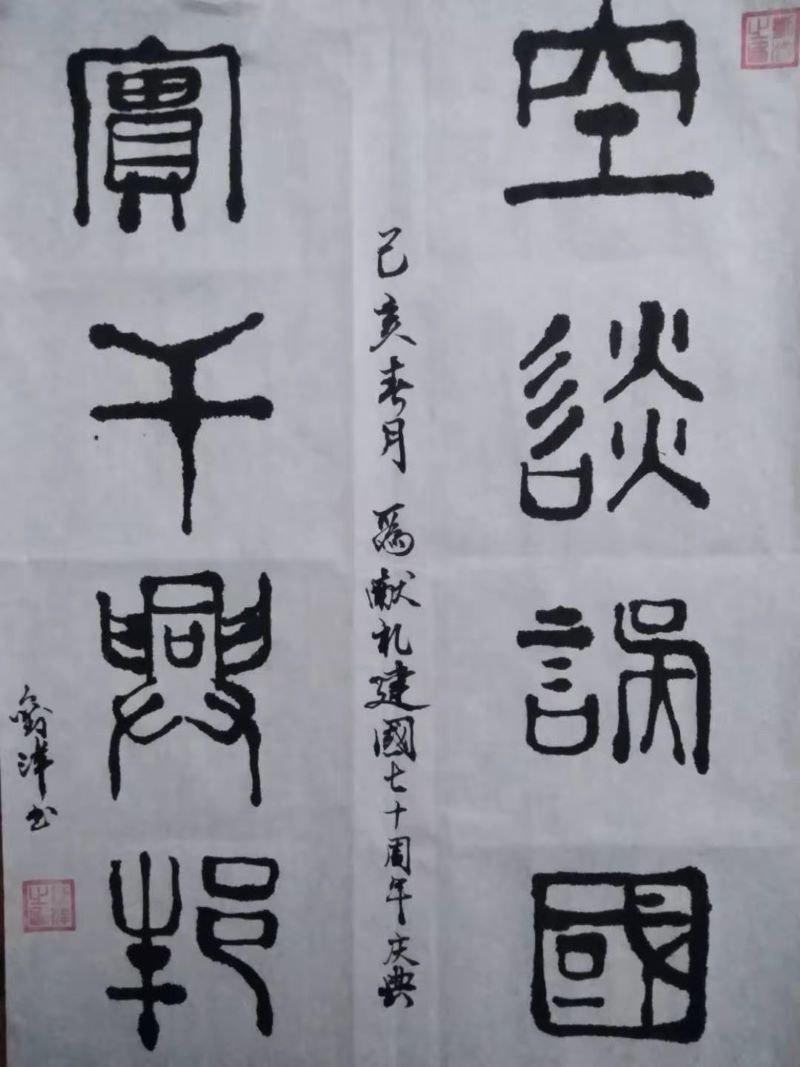 空談誤國
實干興邦
己亥春月 為献礼建國七十周年庆典
洋书